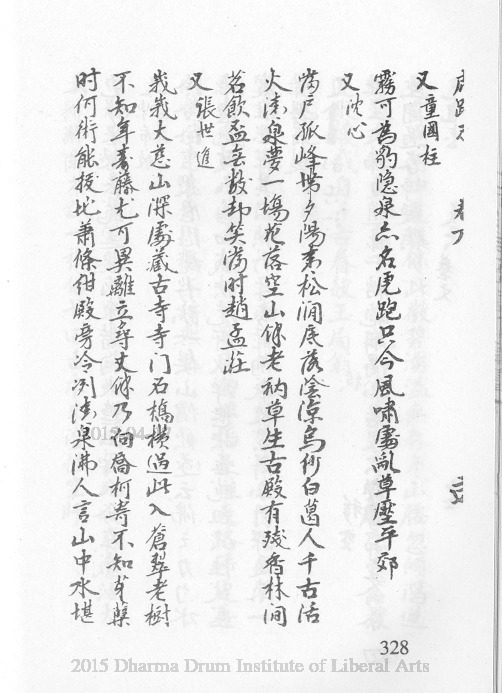 又童國柱
霧可為豹隐泉亦名虎跑只今風嘯處亂草壓平郊
又沈心
當戶孤峰帶夕陽長松澗底落陰涼烏白葛人千古活
火清泉夢一場花落空山餘老衲草生古殿有殘香林间
茗飲盃無数却笑當时趙孟
又張世進
峩峩大慈山深處蔵古寺寺门石橋橫過此入蒼翠老樹
不知年壽藤尤可異離立尋丈餘乃向喬柯寄不知芽櫱
时何術能援地蕭條紺殿旁冷冽清泉沸人言山中水堪
328
2015 Dharma Drum Institute of Liberal Arts